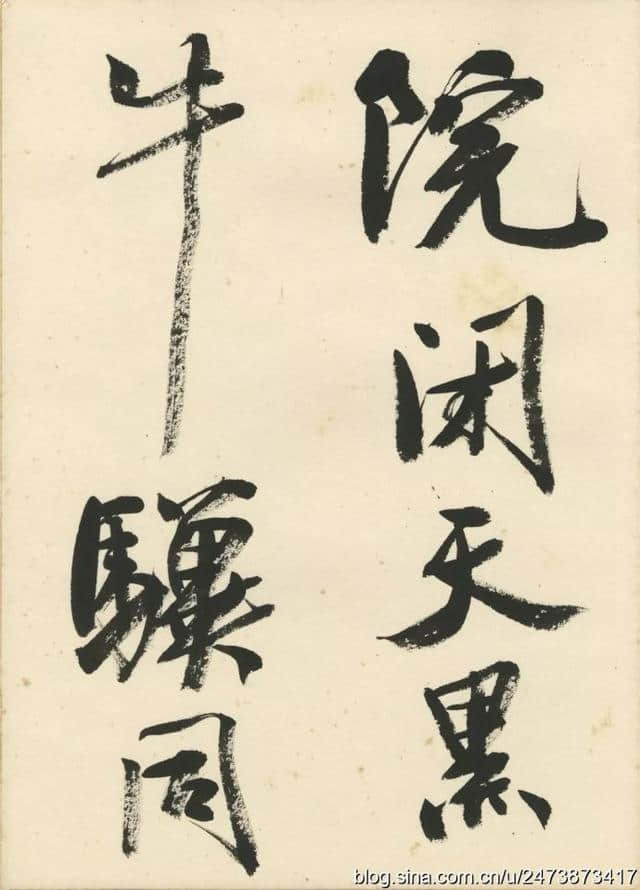 院闭天黑
牛驥同
blog.sina.com.cn/u/2473873417